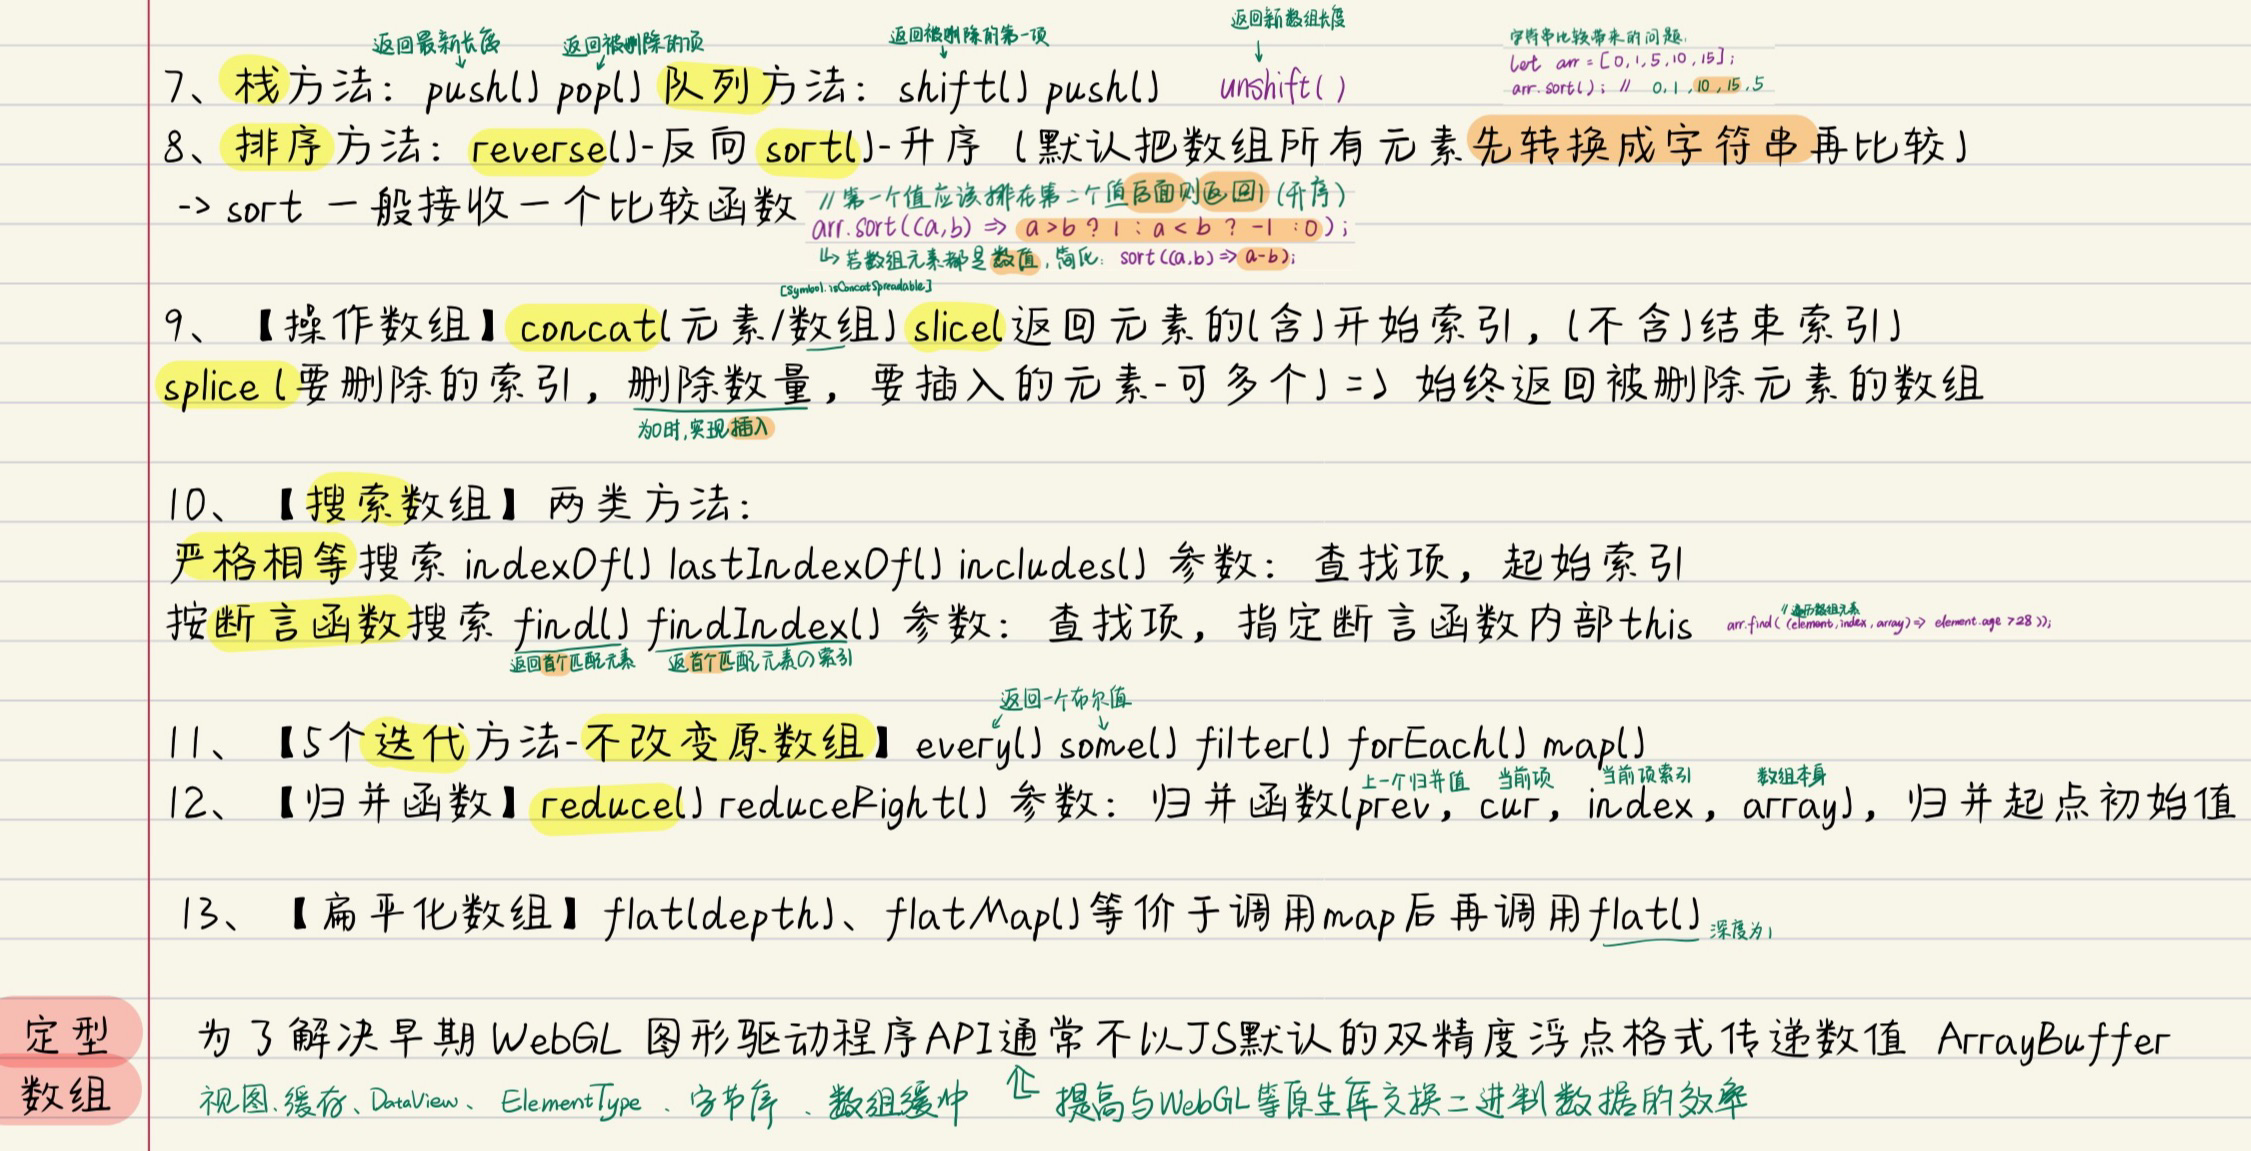 返回最新长度 返回被删除的项 返回被删除的第一项 返回新数组长度
7、栈方法：push() pop() 队列方法：shift() push() unshift()
字符串比较带来的问题.
let arr = [0,1,5,10,15];
arr.sort(); // 0,1,10,15,5
8、排序方法：reverse()-反向 sort()-升序（默认把数组所有元素先转换成字符串再比较）
-> sort 一般接收一个比较函数
//第一个值应该排在第二个值后面则返回1(升序)
arr.sort((a,b) => a>b ? 1 : a<b ? -1 : 0);
↳若数组元素都是数值,简化: sort((a,b)=>a-b);
[Symbol.isConcatSpreadable]
9、【操作数组】concat(元素/数组) slice(返回元素的(含)开始索引，(不含)结束索引)
splice(要删除的索引，删除数量，要插入的元素-可多个) => 始终返回被删除元素的数组
为0时,实现插入
10、【搜索数组】两类方法：
严格相等搜索 indexOf() lastIndexOf() includes() 参数：查找项，起始索引
按断言函数搜索 find() findIndex() 参数：查找项，指定断言函数内部this
//遍历数组元素
arr.find((element,index,array)=> element.age >28));
返回首个匹配元素 返首个匹配元素の索引
返回一个布尔值
11、【5个迭代方法-不改变原数组】every() some() filter() forEach() map()
上一个归并值 当前项 当前项索引 数组本身
12、【归并函数】reduce() reduceRight() 参数：归并函数(prev，cur，index，array)，归并起点初始值
13、【扁平化数组】flat(depth)、flatMap()等价于调用map后再调用flat() 深度为1
定型
数组
为了解决早期 WebGL 图形驱动程序API通常不以JS默认的双精度浮点格式传递数值 ArrayBuffer
视图.缓存、DataView、ElementType、字节序、数组缓冲 提高与WebGL等原生库交换二进制数据的效率